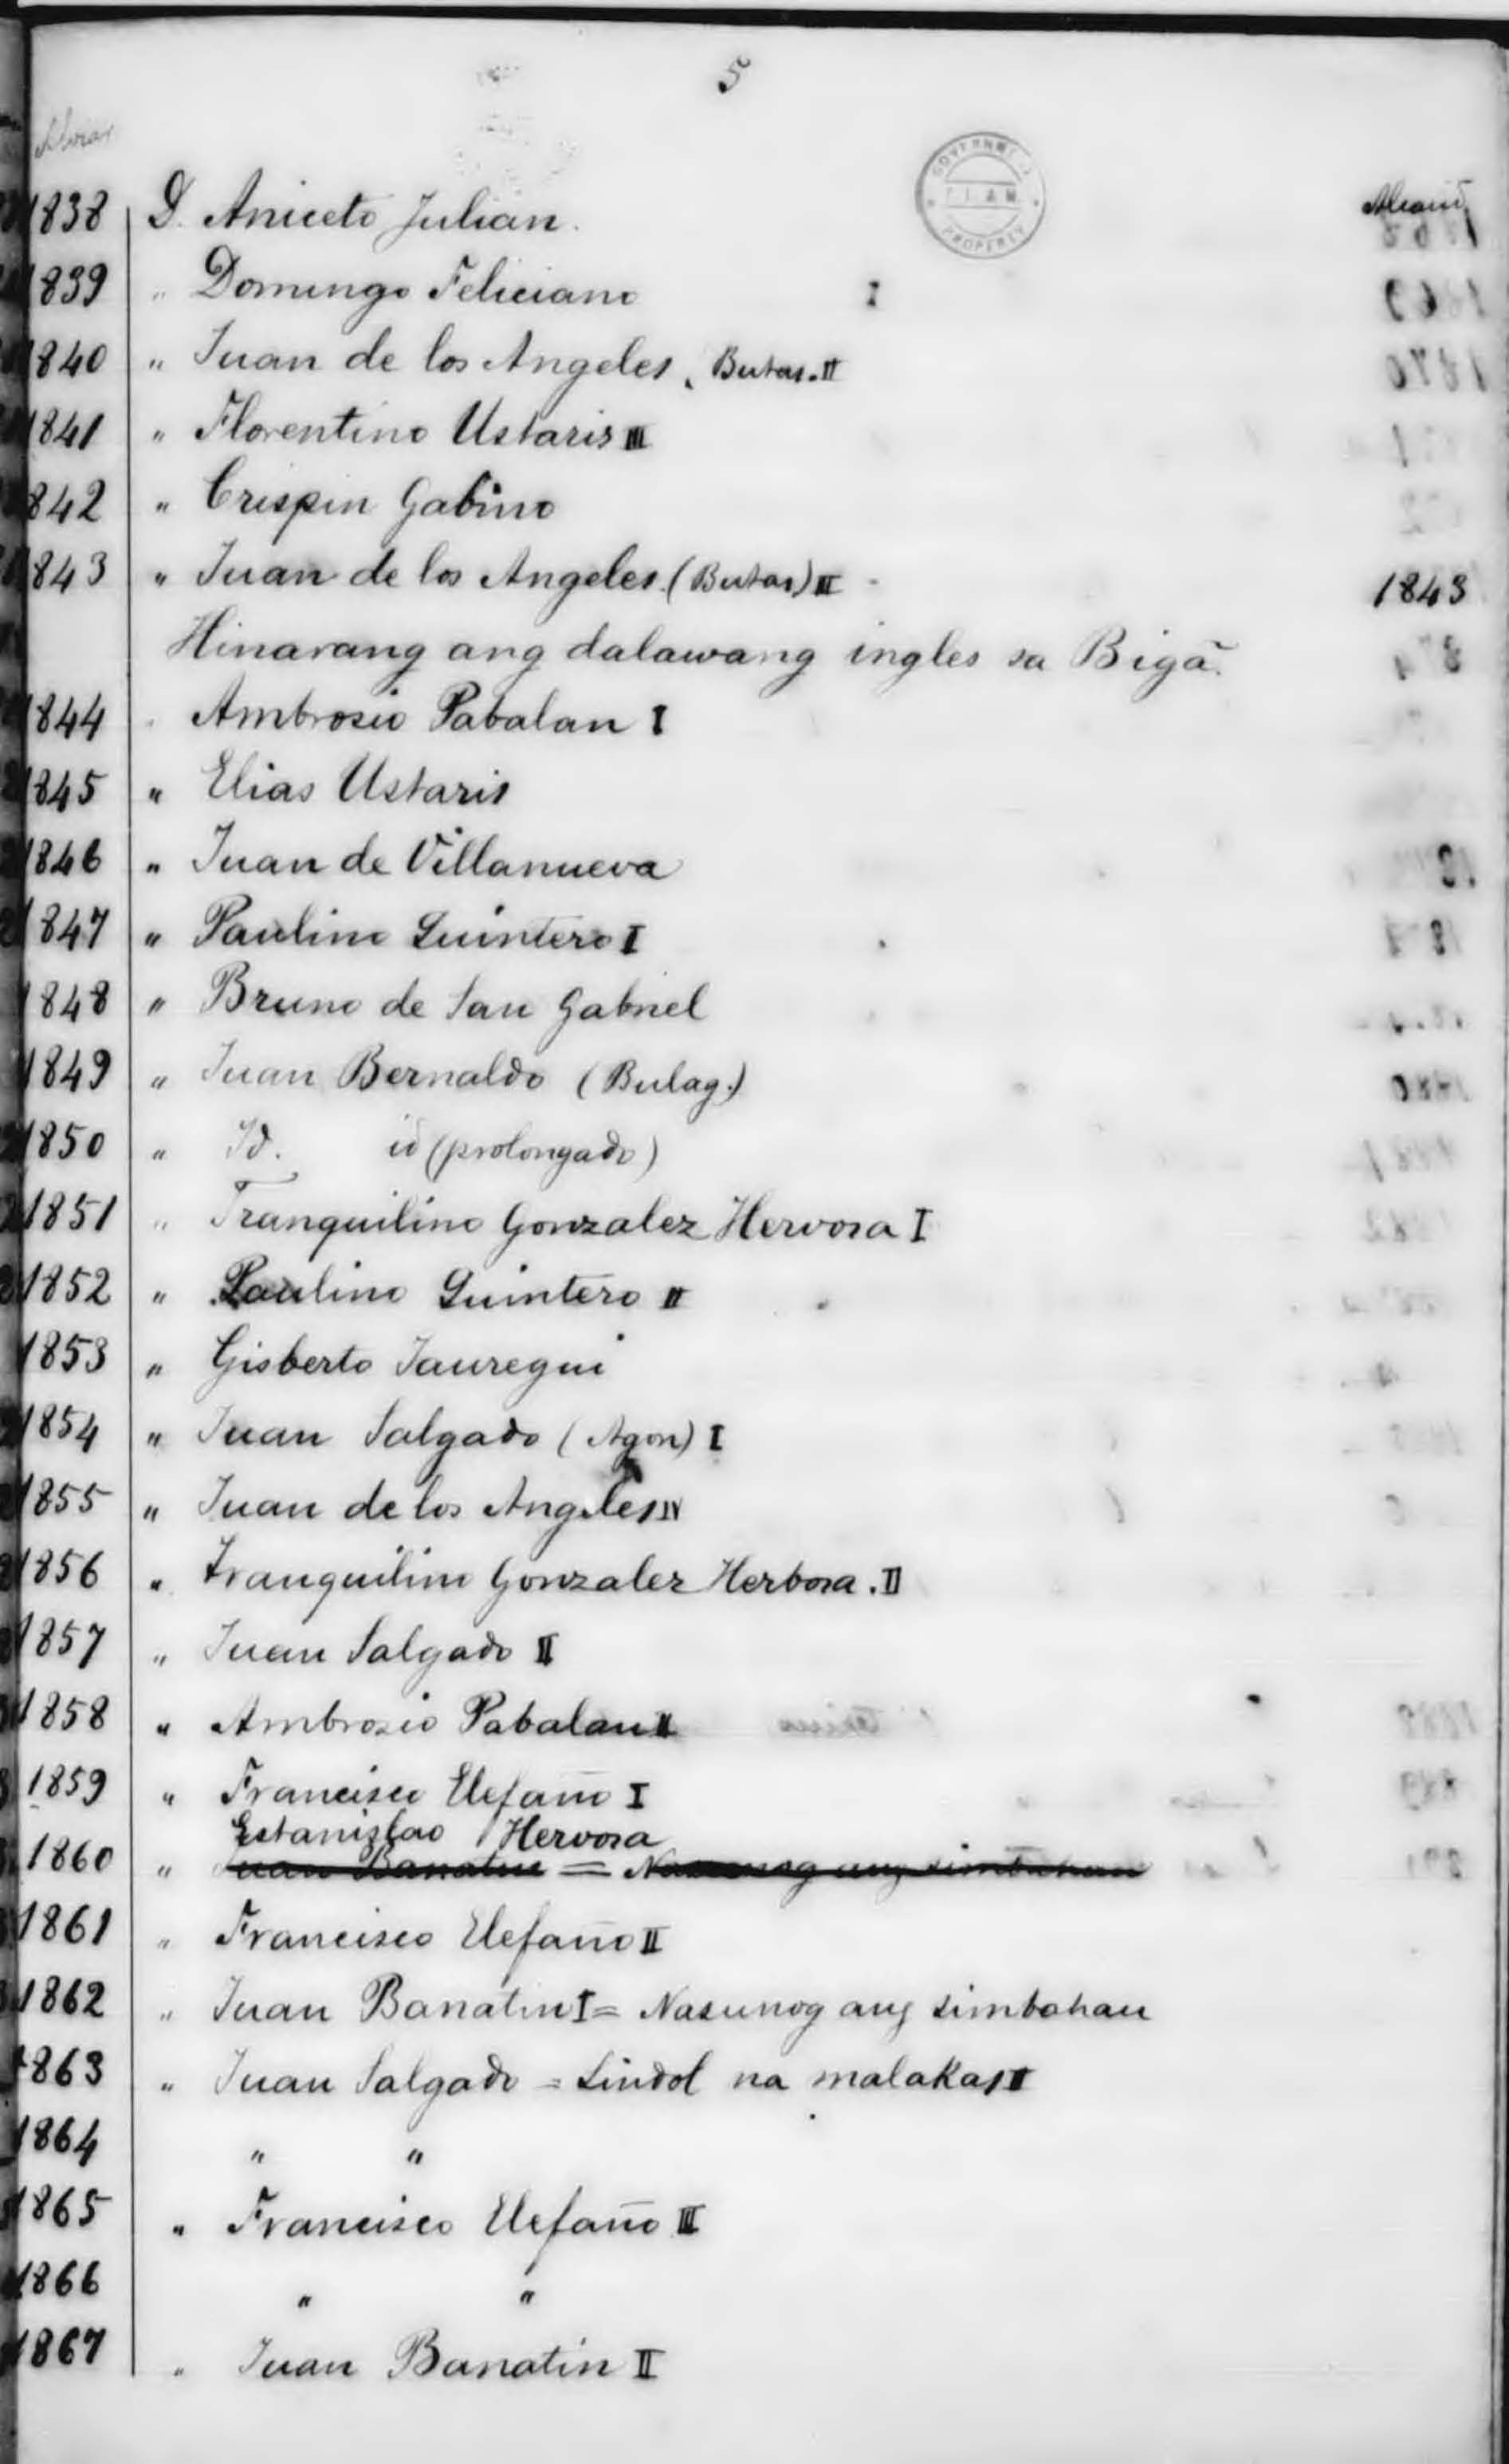 5
1838 D. Aniceto Julian.
1839 " Domingo Feliciano I
1840 " Juan de los Angeles, Butas. II
1841 " Florentino Ustaris III
1842 " Crispin Gabino
1843 " Juan de los Angeles (Butas) III 1843
Hinarang ang dalawang ingles sa Bigã.
1844 " Ambrosio Pabalan I
1845 " Elias Ustaris
1846 " Juan de Villanueva
1847 " Paulino Quintero I
1848 " Bruno de San Gabriel
1849 " Juan Bernaldo (Bulag.)
1850 " Id. id (prolongado)
1851 " Tranquilino Gonzalez Hervosa I
1852 " Paulino Quintero II
1853 " Gisberto Jauregui
1854 " Juan Salgado (Agon) I
1855 " Juan de los Angeles IV
1856 " Tranquilino Gonzalez Herbosa. II
1857 " Juan Salgado II
1858 " Ambrosio Pabalan II
1859 " Francisco Elefaño I
Estanislao Hervosa
1860 " Juan Banatin = Nasunog ang simbahan
1861 " Francisco Elefaño II
1862 " Juan Banatin I = Nasunog ang simbahan
1863 " Juan Salgado = Lindol na malakas II
1864 " "
1865 " Francisco Elefaño III
1866 " "
1867 " Juan Banatin II